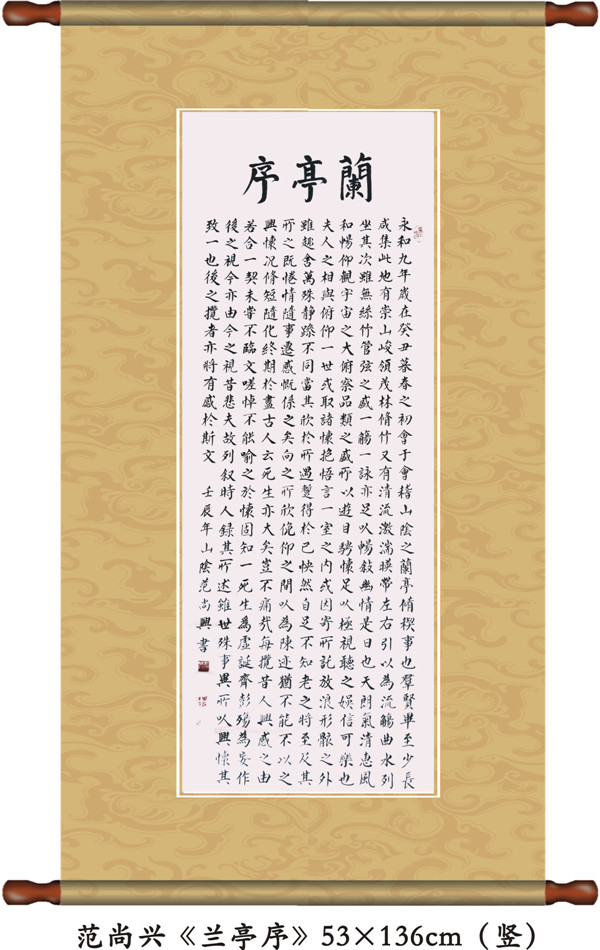 蘭亭序
永和九年歲在癸丑暮春之初會于會稽山陰之蘭亭脩稧事也羣賢畢至少長
咸集此地有崇山峻領茂林脩竹又有清流激湍暎帶左右引以為流觴曲水列
坐其次雖無絲竹管弦之盛一觴一詠亦足以暢敘幽情是日也天朗氣清惠風
和暢仰觀宇宙之大俯察品類之盛所以遊目騁懷足以極視聽之娛信可樂也
夫人之相與俯仰一世或取諸懷抱悟言一室之內或因寄所託放浪形骸之外
雖趣舍萬殊靜躁不同當其欣於所遇蹔得於己怏然自足不知老之將至及其
所之既惓情隨事遷感慨係之矣向之所欣俛仰之間以為陳迹猶不能不以之
興懷況脩短隨化終期於盡古人云死生亦大矣豈不痛哉每攬昔人興感之由
若合一契未嘗不臨文嗟悼不能喻之於懷固知一死生為虛誕齊彭殤為妄作
後之視今亦由今之視昔悲夫故列叙時人録其所述雖世殊事異所以興懷其
致一也後之攬者亦將有感於斯文 壬辰年山陰范尚興書
范尚兴《兰亭序》53×136cm（竖）